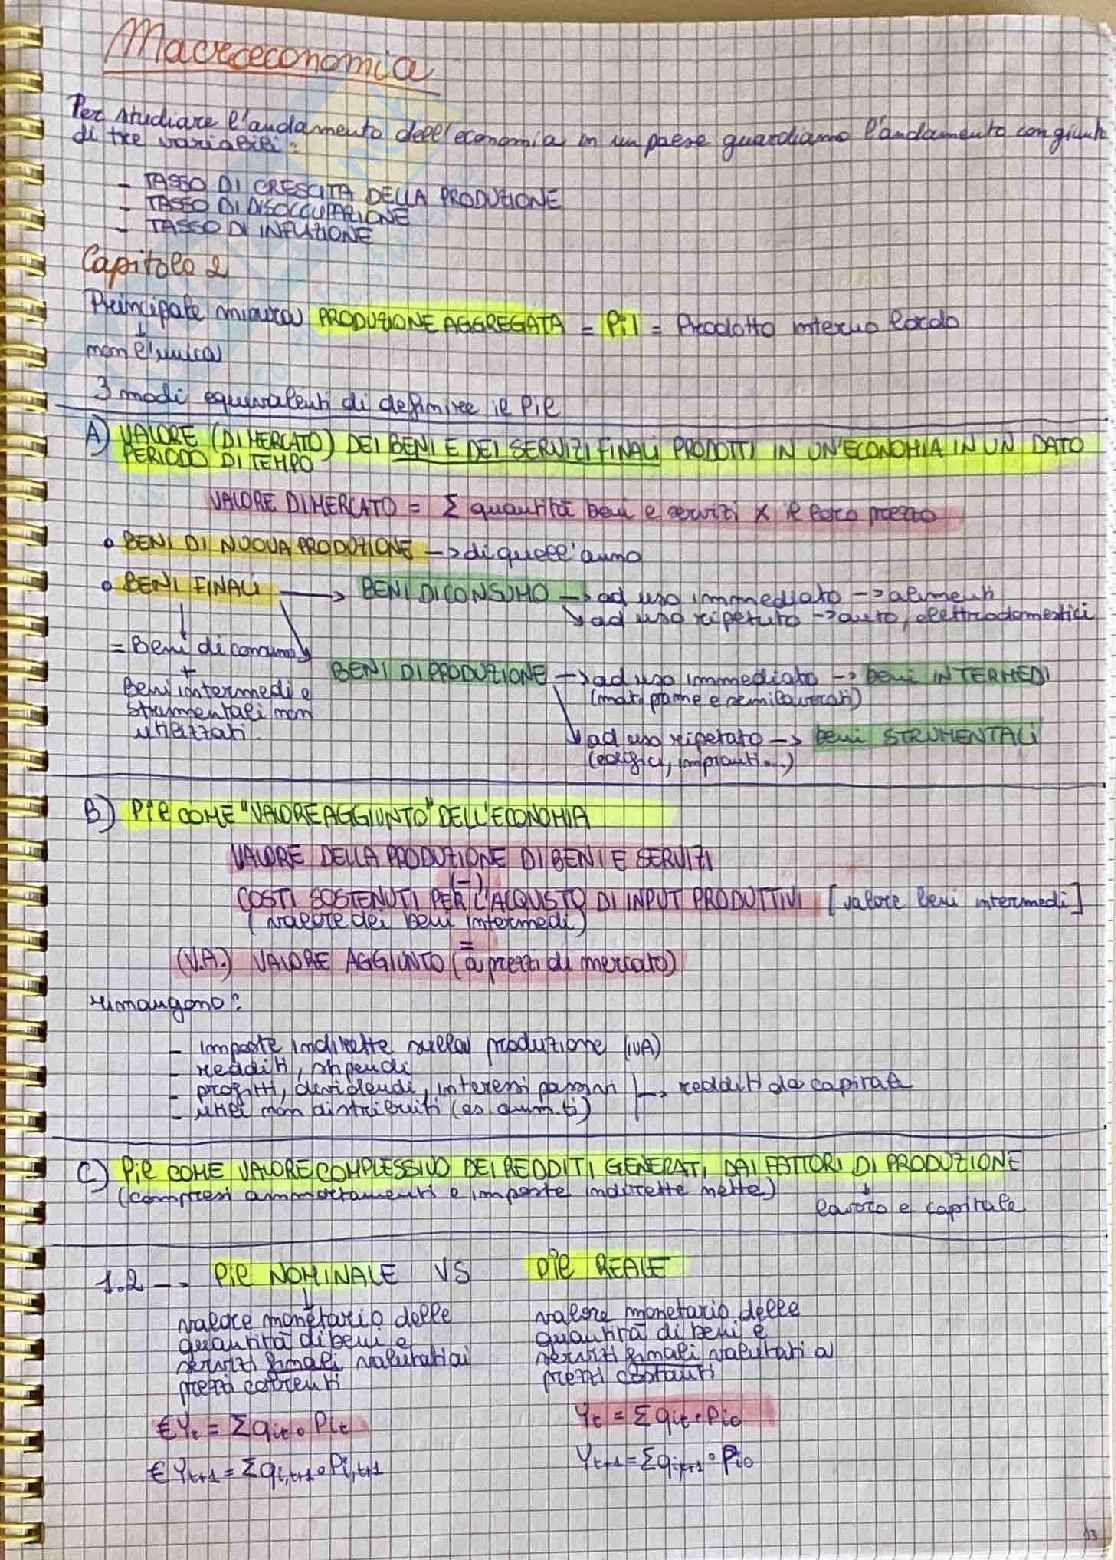 Macroeconomia
Per studiare l'andamento dell'economia in un paese guardiamo l'andamento congiunto
di tre variabili:
- TASSO DI CRESCITA DELLA PRODUZIONE
- TASSO DI DISOCCUPAZIONE
- TASSO DI INFLAZIONE
Capitolo 2
Principale misura PRODUZIONE AGGREGATA = Pil = Prodotto interno lordo
non è l'unica
3 modi equivalenti di definire il Pil
A) VALORE (DI MERCATO) DEI BENI E DEI SERVIZI FINALI PRODOTTI IN UN'ECONOMIA IN UN DATO
PERIODO DI TEMPO
VALORE DI MERCATO = Σ quantità beni e servizi x il loro prezzo
• BENI DI NUOVA PRODUZIONE -> di quell'anno
• BENI FINALI -> BENI DI CONSUMO -> ad uso immediato -> alimenti
-> ad uso ripetuto -> auto, elettrodomestici
= Beni di consumo
+
Beni intermedi e
strumentali non
utilizzati.
BENI DI PRODUZIONE -> ad uso immediato -> beni INTERMEDI
(mat. prime e semilavorati)
-> ad uso ripetuto -> beni STRUMENTALI
(edifici, impianti...)
B) Pil COME "VALORE AGGIUNTO" DELL'ECONOMIA
VALORE DELLA PRODUZIONE DI BENI E SERVIZI
(-)
COSTI SOSTENUTI PER L'ACQUISTO DI INPUT PRODUTTIVI [valore beni intermedi]
(valore dei beni intermedi)
=
(V.A.) VALORE AGGIUNTO (a prezzi di mercato)
rimangono:
- imposte indirette sulla produzione (IVA)
- redditi, stipendi
- profitti, dividendi, interessi passivi -> redditi da capitale
- utili non distribuiti (es. amm.ti)
C) Pil COME VALORE COMPLESSIVO DEI REDDITI GENERATI DAI FATTORI DI PRODUZIONE
(compresi ammortamenti e imposte indirette nette)
lavoro e capitale
1.2 -. Pil NOMINALE VS Pil REALE
valore monetario delle
quantità di beni e
servizi finali valutati ai
prezzi correnti
€Yt = Σqit • Pit
€Yt+1 = Σqi,t+1 • Pi,t+1
valore monetario delle
quantità di beni e
servizi finali valutati a
prezzi costanti
Yt = Σqit • Pio
Yt+1 = Σqit+1 • Pio